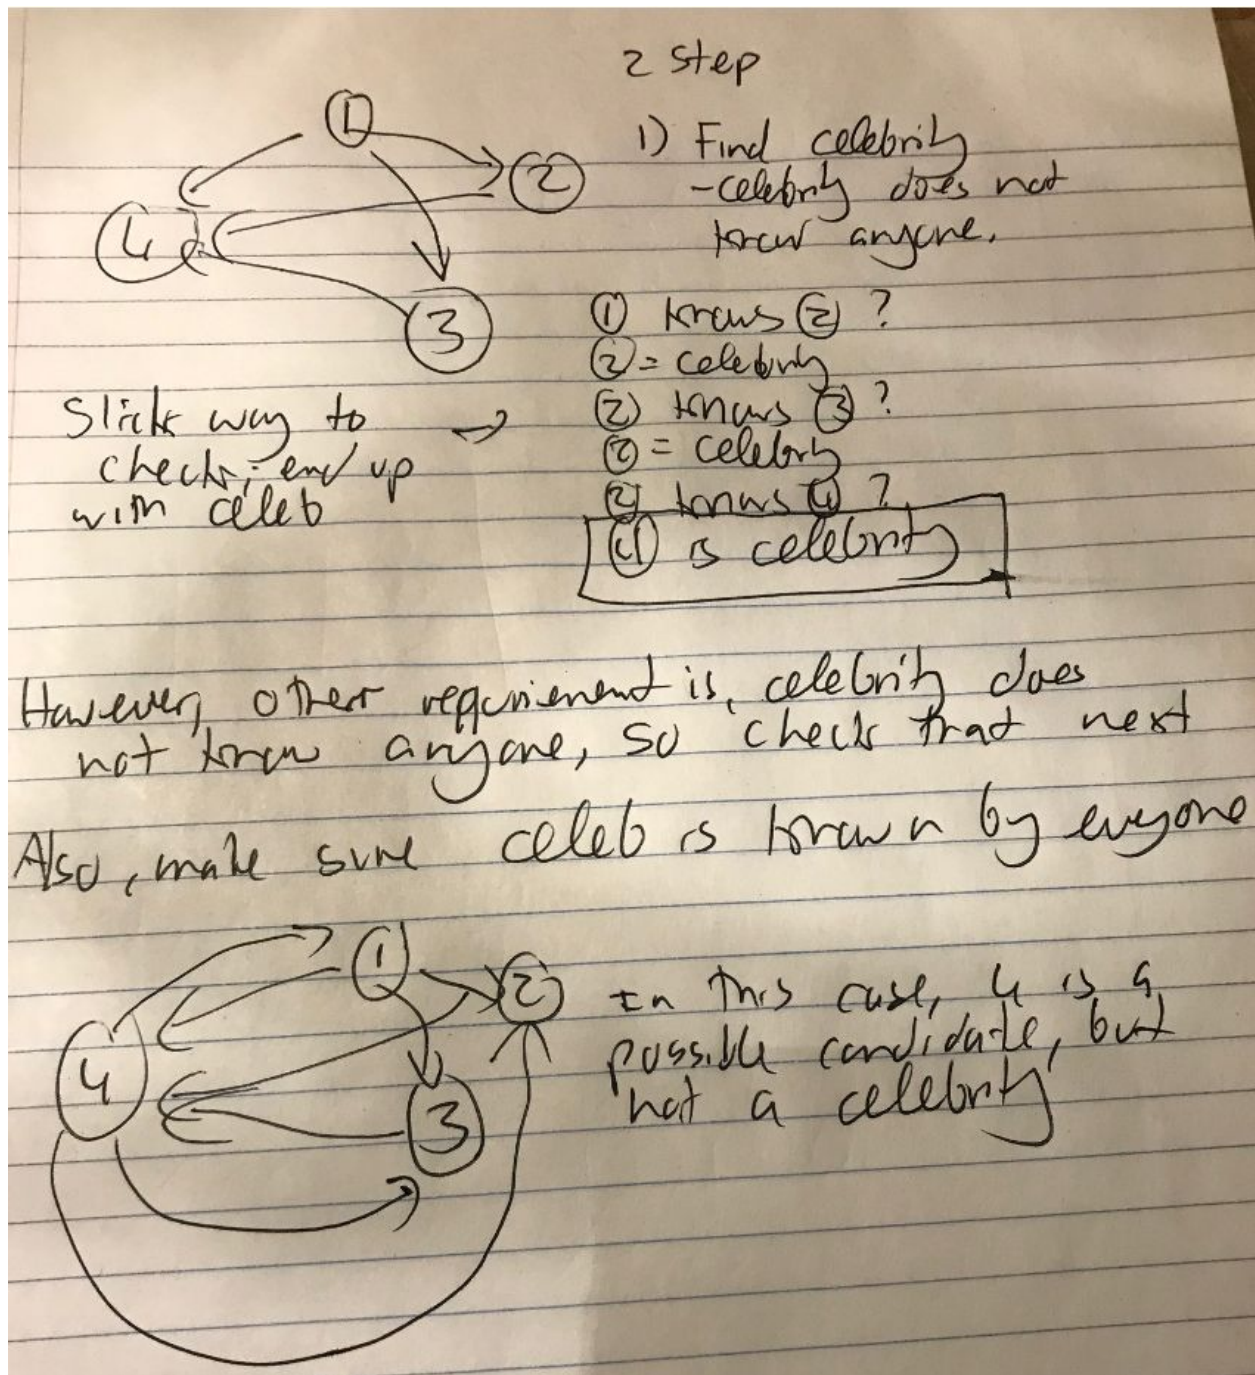 2 step
1
2
4
3
1) Find celebrity
-celebrity does not
know anyone.
1 knows 2 ?
2 = celebrity
2 knows 3 ?
2 = celebrity
2 knows 4 ?
4 is celebrity
Slick way to →
check, end up
with celeb
However, other requirement is, celebrity does
not know anyone, so check that next
Also, make sure celeb is known by everyone
1
2
4
3
In this case, 4 is a
possible candidate, but
not a celebrity